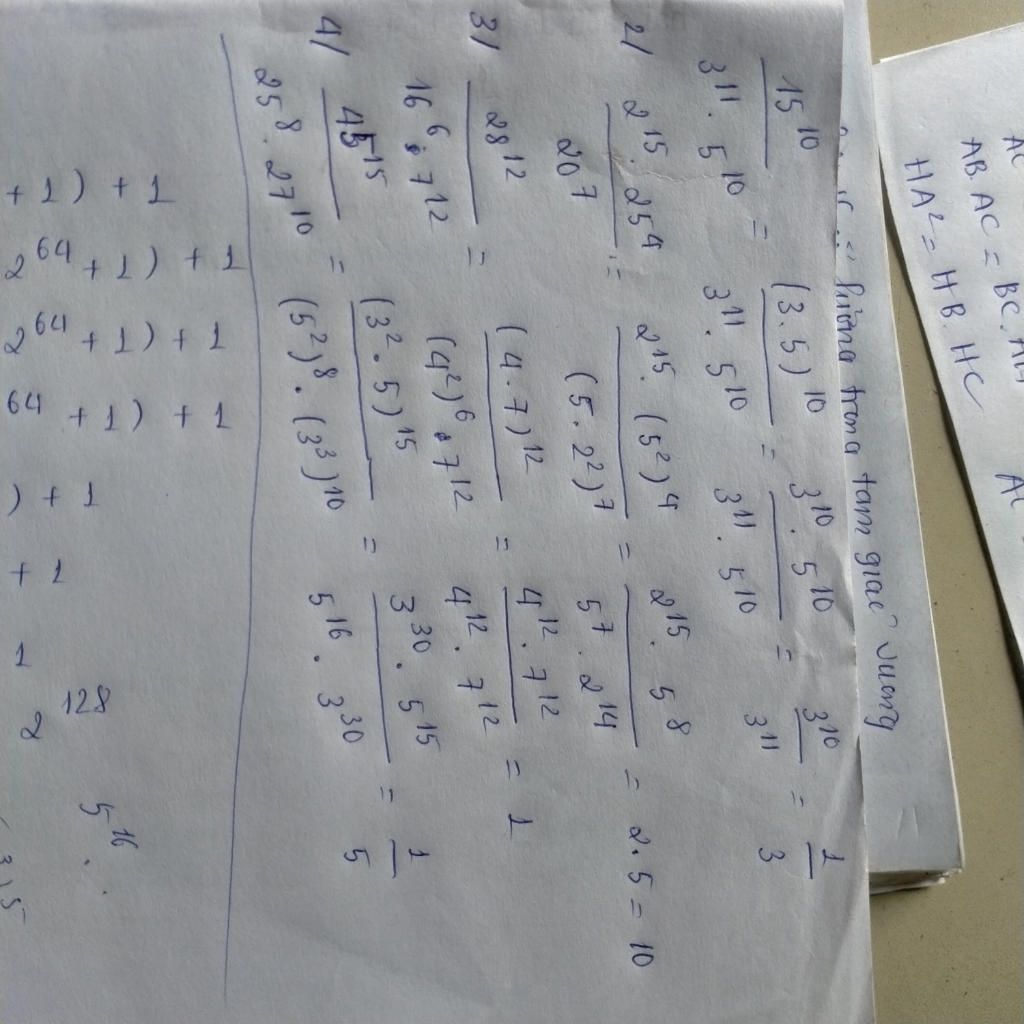 15^10 / (3^11 . 5^10) = (3.5)^10 / (3^11 . 5^10) = (3^10 . 5^10) / (3^11 . 5^10) = 3^10 / 3^11 = 1/3
2/ (2^15 . 25^4) / 20^7 = (2^15 . (5^2)^4) / (5.2^2)^7 = (2^15 . 5^8) / (5^7 . 2^14) = 2.5 = 10
3/ 28^12 / (16^6 . 7^12) = (4.7)^12 / ((4^2)^6 . 7^12) = (4^12 . 7^12) / (4^12 . 7^12) = 1
4/ 45^15 / (25^8 . 27^10) = (3^2 . 5)^15 / ((5^2)^8 . (3^3)^10) = (3^30 . 5^15) / (5^16 . 3^30) = 1/5
+ 1) + 1
2^64 + 1) + 1
2^64 + 1) + 1
64 + 1) + 1
) + 1
+ 1
1
2^128
5^16 .
trong tam giác vuông
AC
AB.AC = BC.AH
HA^2 = HB.HC